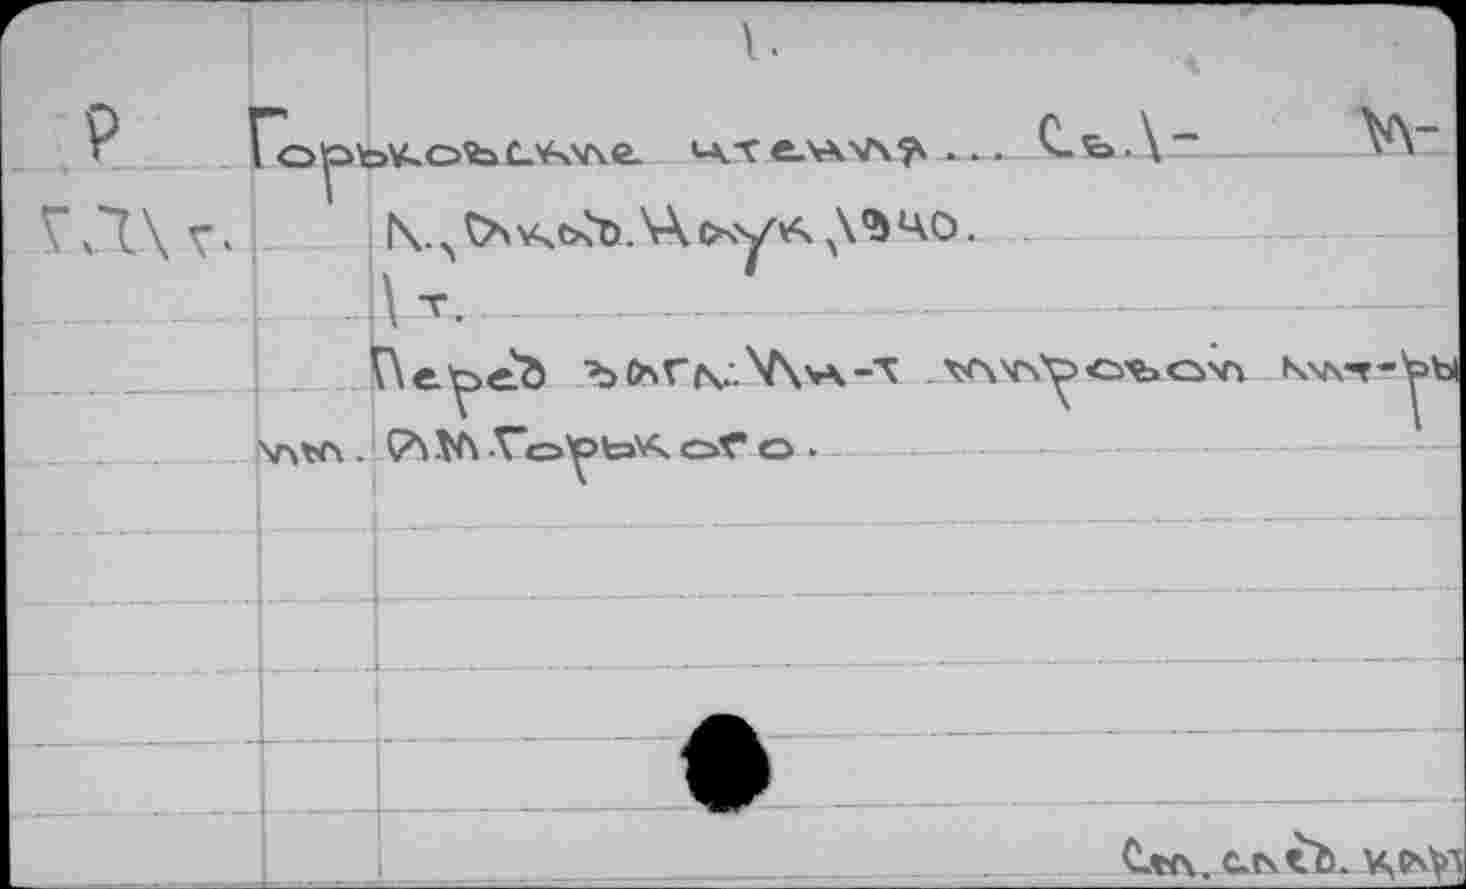 1.
Р Горьковские чтения ... Св.1- М-
Г.Л1 г. Л., Акад. Наук, 19 40.
1 т.
Перед загл.: Ин-т мировой лит-ры
им. А.М. Горького.
См. след. кар